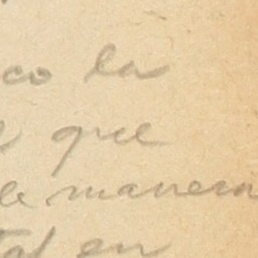 co la
que
de manera
tal en